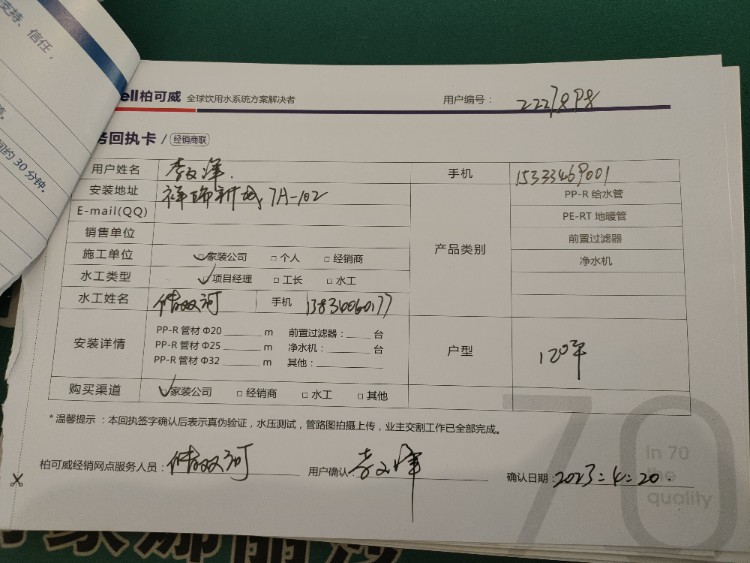 支持、信任，
约 30 分钟。
ell柏可威 全球饮用水系统方案解决者 用户编号：
回执卡 / 经销商联
用户姓名 手机 15333469001
安装地址 祥瑞新城 7A-102 产品类别 PP-R 给水管
E-mail(QQ) PE-RT 地暖管
销售单位 前置过滤器
施工单位 ✓家装公司 □ 个人 □ 经销商 净水机
水工类型 ✓项目经理 □ 工长 □ 水工
水工姓名 双河 手机
安装详情 PP-R 管材 Φ20 m 前置过滤器： 台 户型 120平
PP-R 管材 Φ25 m 净水机： 台
PP-R 管材 Φ32 m 其他：
购买渠道 ✓家装公司 □ 经销商 □ 水工 □ 其他
* 温馨提示 ：本回执签字确认后表示真伪验证，水压测试，管路图拍摄上传，业主交割工作已全部完成。
70
In 70
the
quality
柏可威经销网点服务人员： 双河 用户确认： 确认日期： 2023.4.20